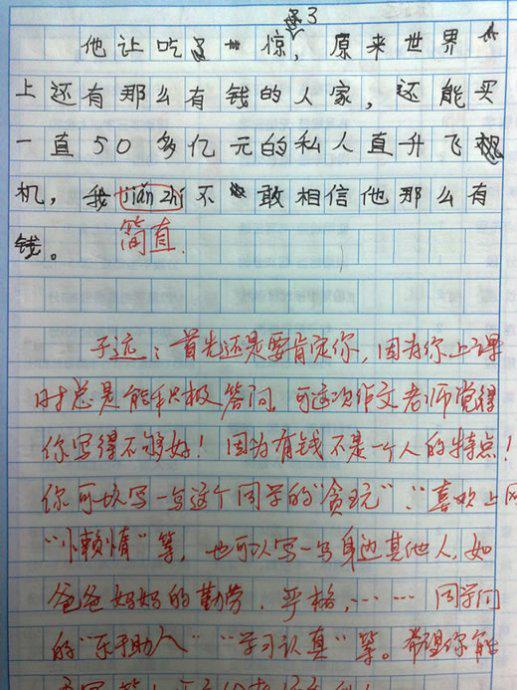 他让吃了一惊, 原来世界
上还有那么有钱的人家,还能买
一直50多亿元的私人直升飞
机,我jiǎn zhí不敢相信他那么有
钱。 简直
子远:首先还是要肯定你,因为你上课
时总是能积极答问。可这次作文老师觉得
你写得不够好!因为有钱不是一个人的特点!
你可以写一写这个同学的“贪玩”、“喜欢上网
“小赖情”等,也可以写一写身边其他人,如
爸爸妈妈的勤劳、严格,…… 同学们
的“乐于助人”“学习认真”等。希望你能